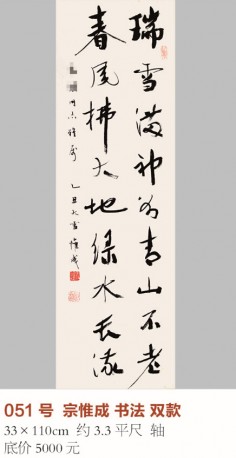 瑞雪满神州青山不老
春风拂大地绿水长流
同志
乙丑大雪 惟成
051 号 宗惟成 书法 双款
33×110cm 约 3.3 平尺 轴
底价 5000 元